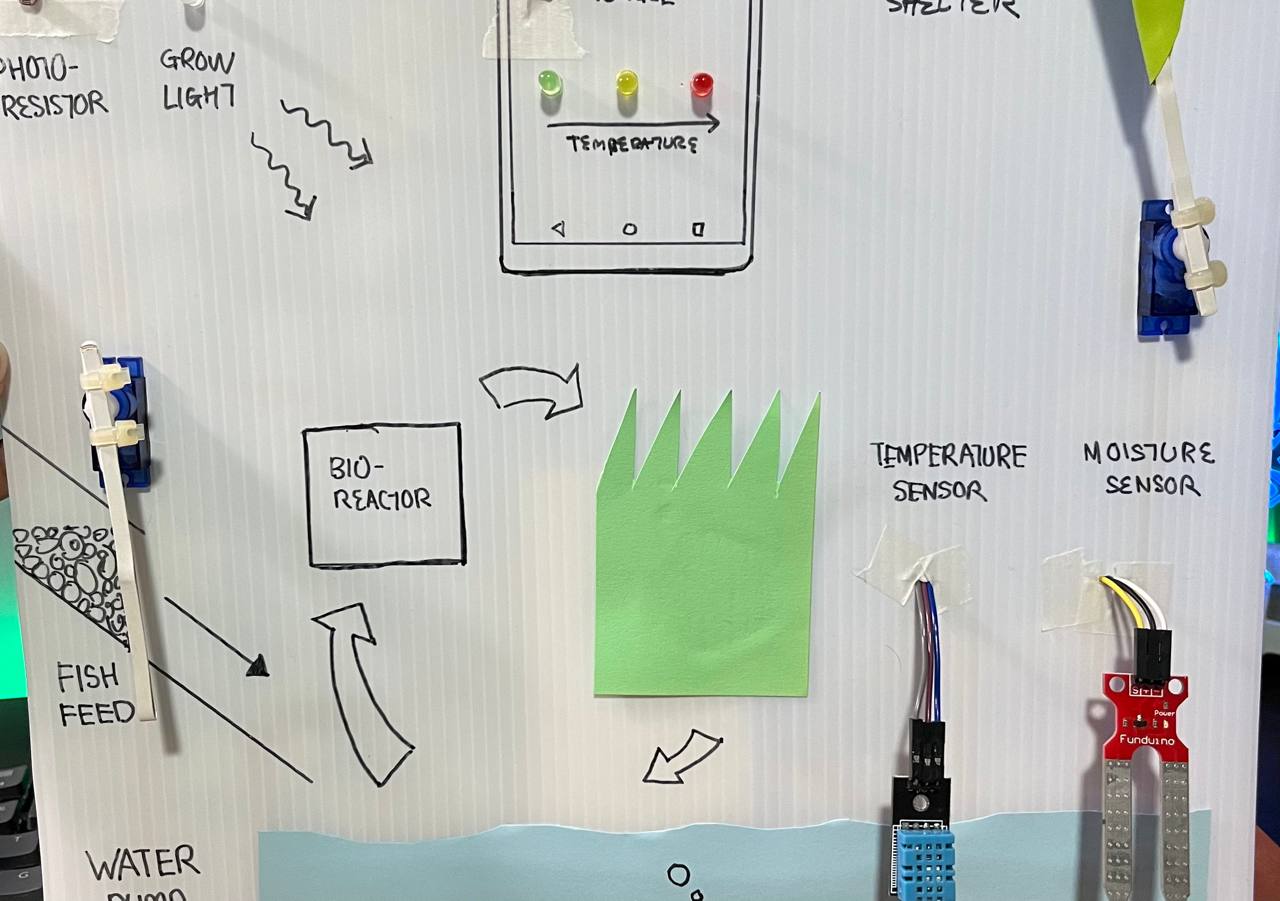 SHELTER
PHOTO-
RESISTOR
GROW
LIGHT
TEMPERATURE
BIO-
REACTOR
TEMPERATURE
SENSOR
MOISTURE
SENSOR
FISH
FEED
S + -
Power
Funduino
WATER
PUMP
G